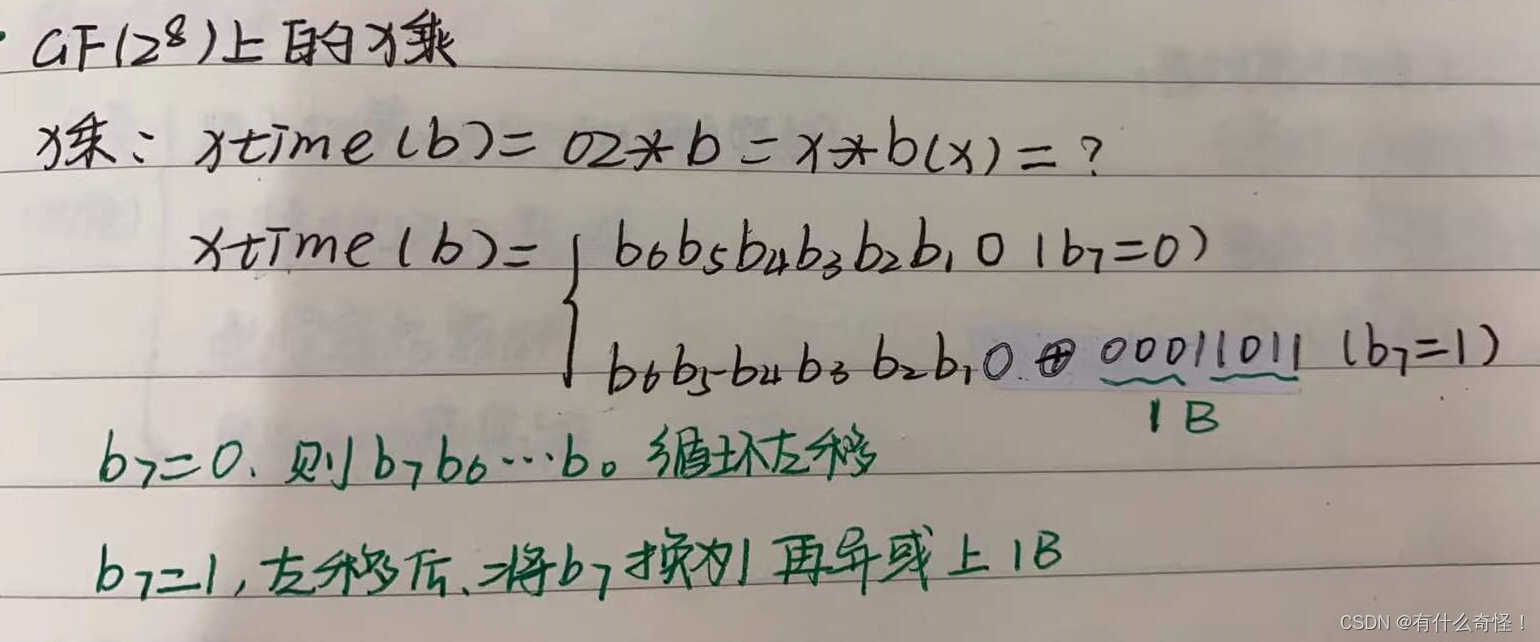 GF(2⁸)上的x乘
x乘: xtime(b)=02*b=x*b(x)=?
xtime(b)={ b₆b₅b₄b₃b₂b₁0 (b₇=0)
b₆b₅b₄b₃b₂b₁0⊕00011011 (b₇=1)
1B
b₇=0.则b₇b₆…b₀循环左移
b₇=1,左移后、将b₇换为1再异或上1B
CSDN @有什么奇怪!